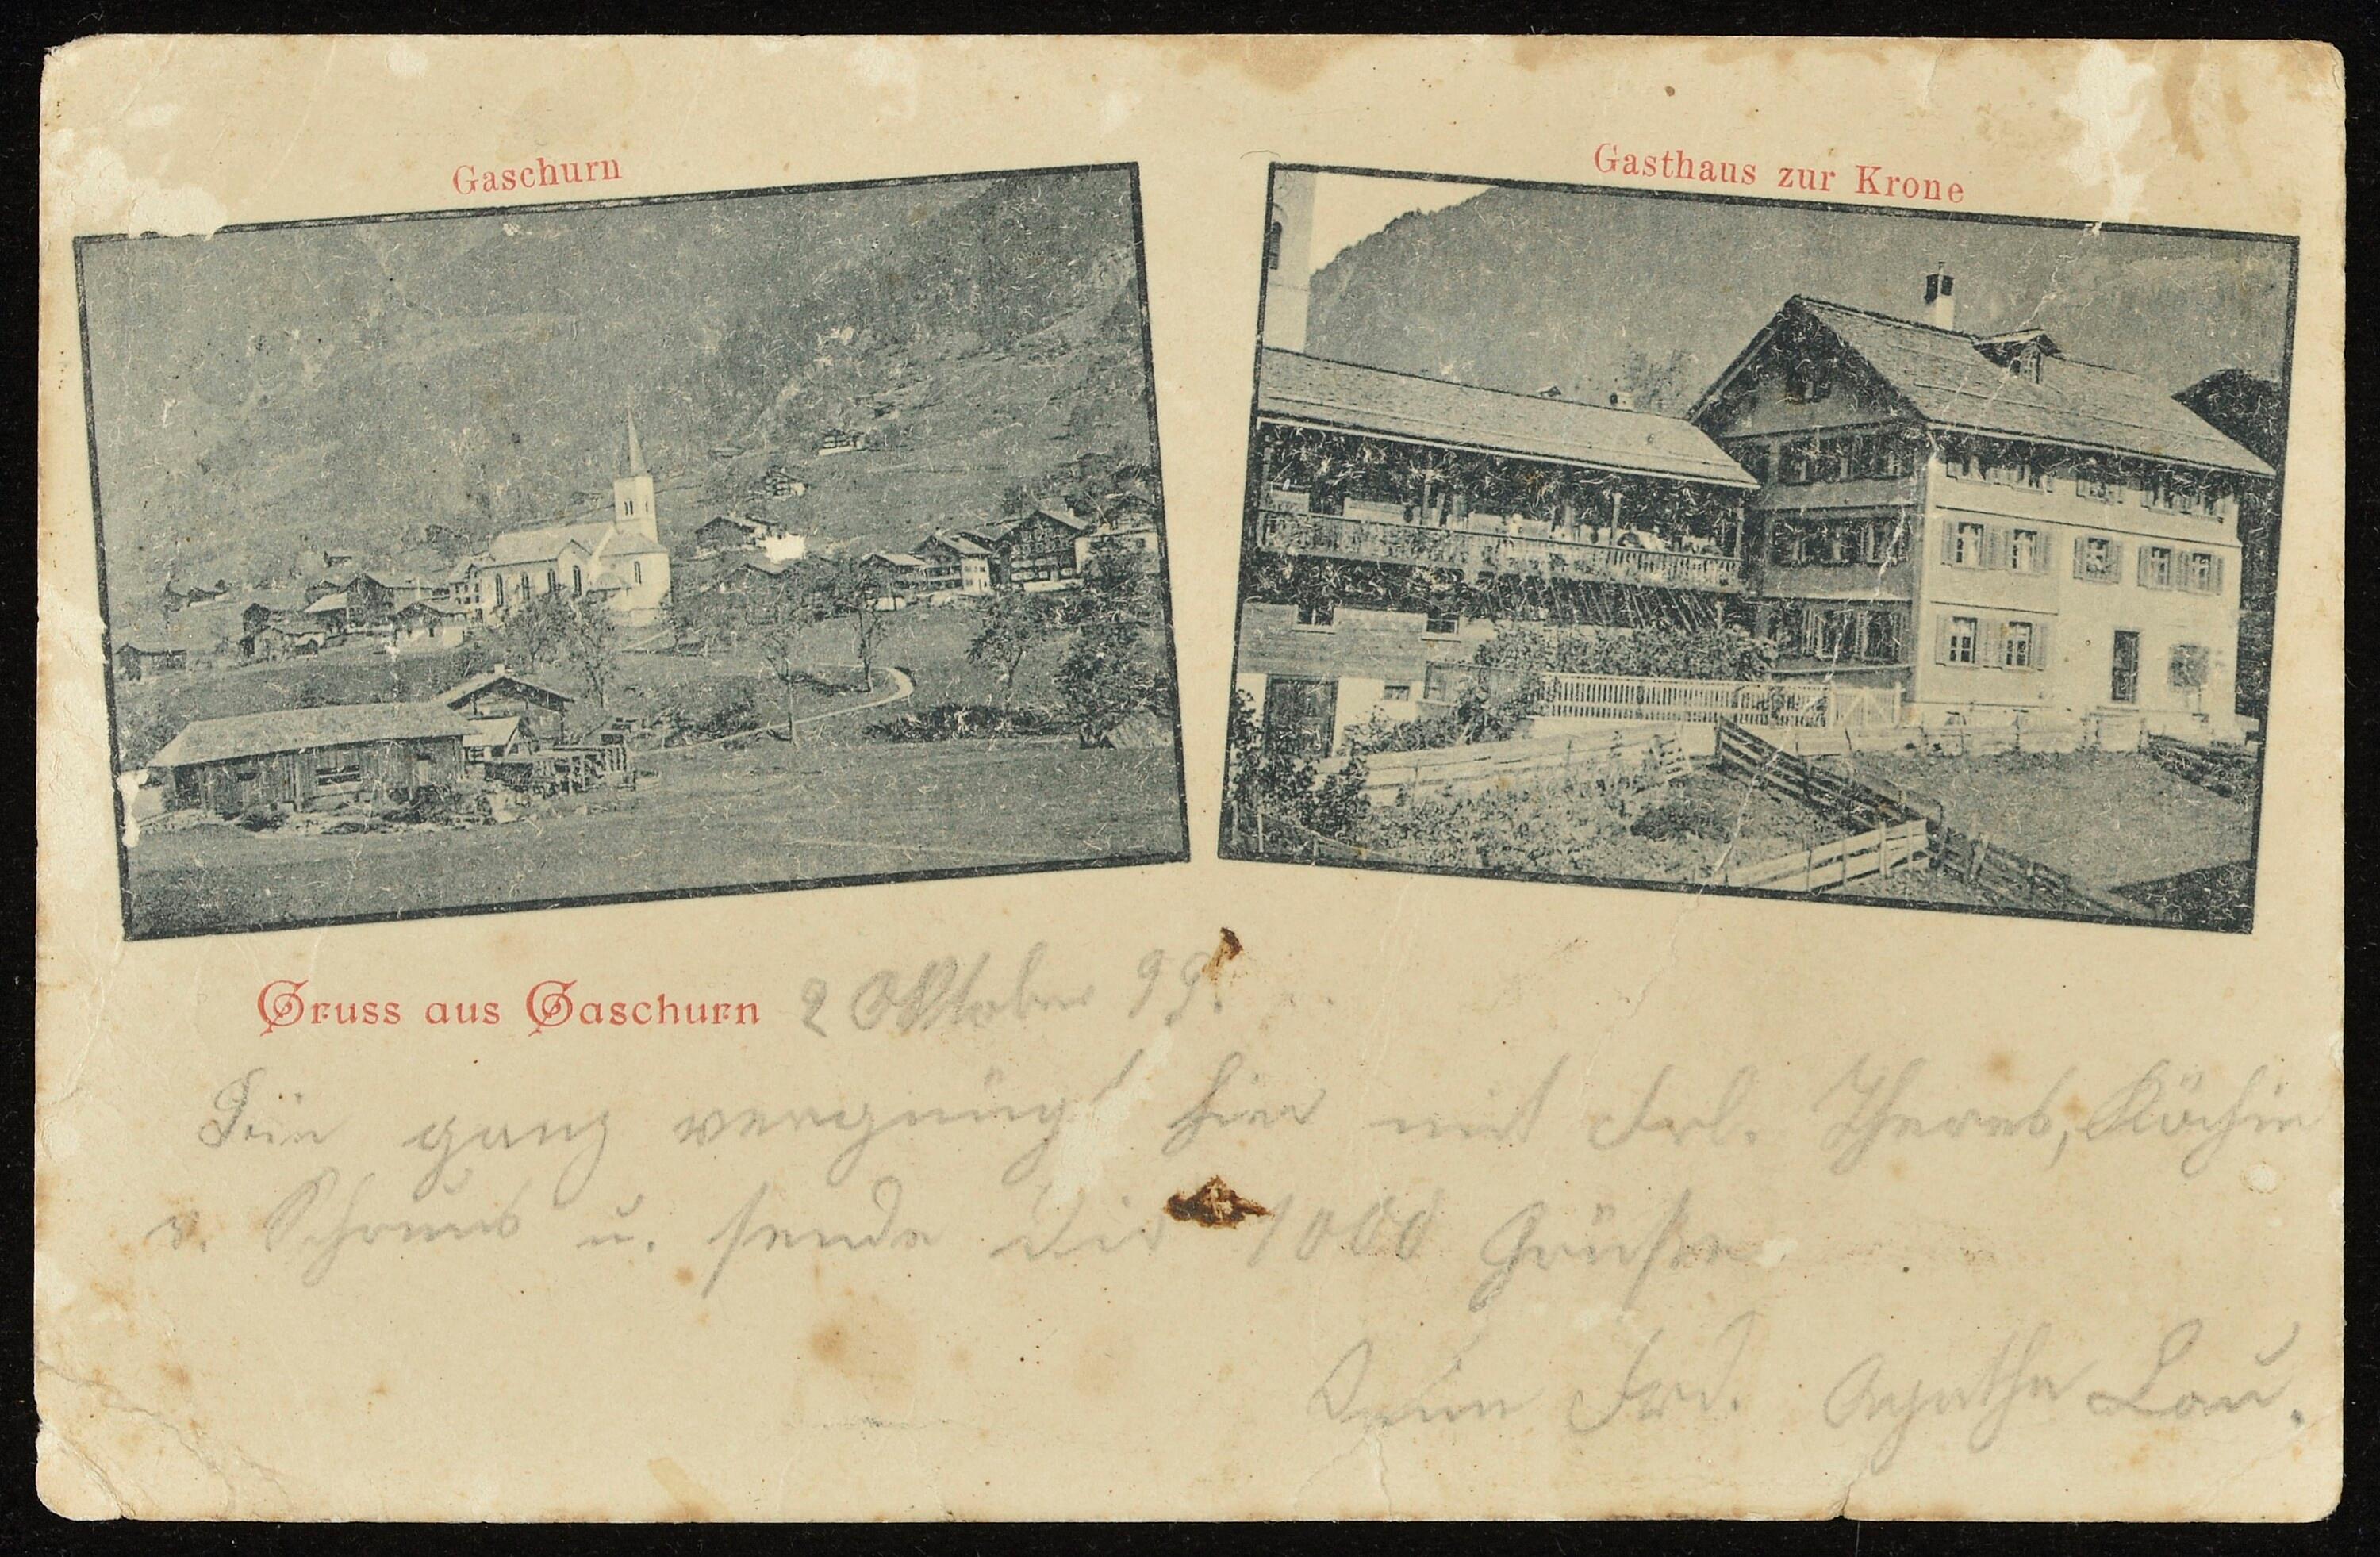 Gaschurn
Gasthaus zur Krone
Gruss aus Gaschurn 2 Oktober 99.
Bin ganz vergnügt hier mit Frl. Theres, Köchin
v. Schruns u. sende dir 1000 Grüße
Deine Frd. Agatha Lau.